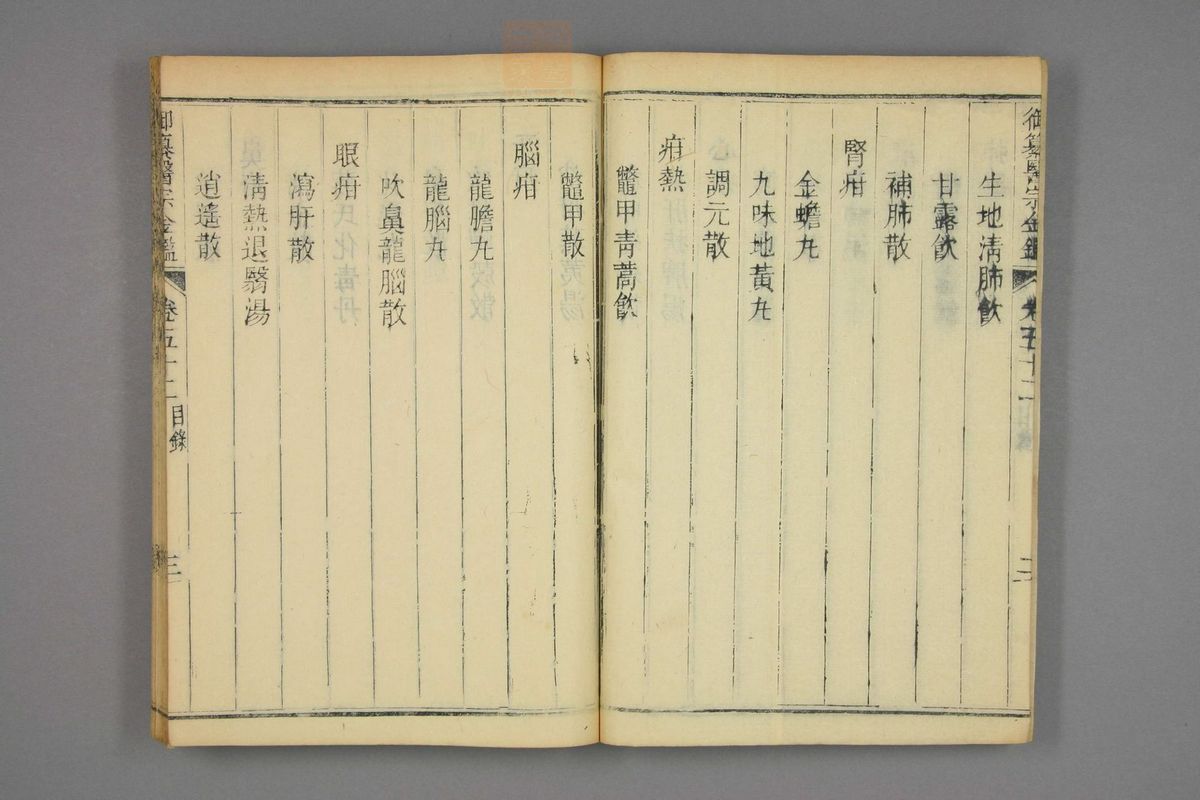 御纂醫宗金鑑 卷五十二 目錄 二
生地清肺飲
甘露飲
補肺散
腎疳
金蟾丸
九味地黃丸
調元散
疳熱
鼈甲青蒿飲
鼈甲散
腦疳
龍膽丸
龍腦丸
吹鼻龍腦散
眼疳
瀉肝散
清熱退翳湯
逍遙散
御纂醫宗金鑑 卷五十二 目錄 三